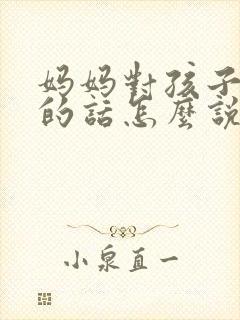 妈妈對孩子
的話怎麼說
小泉直一